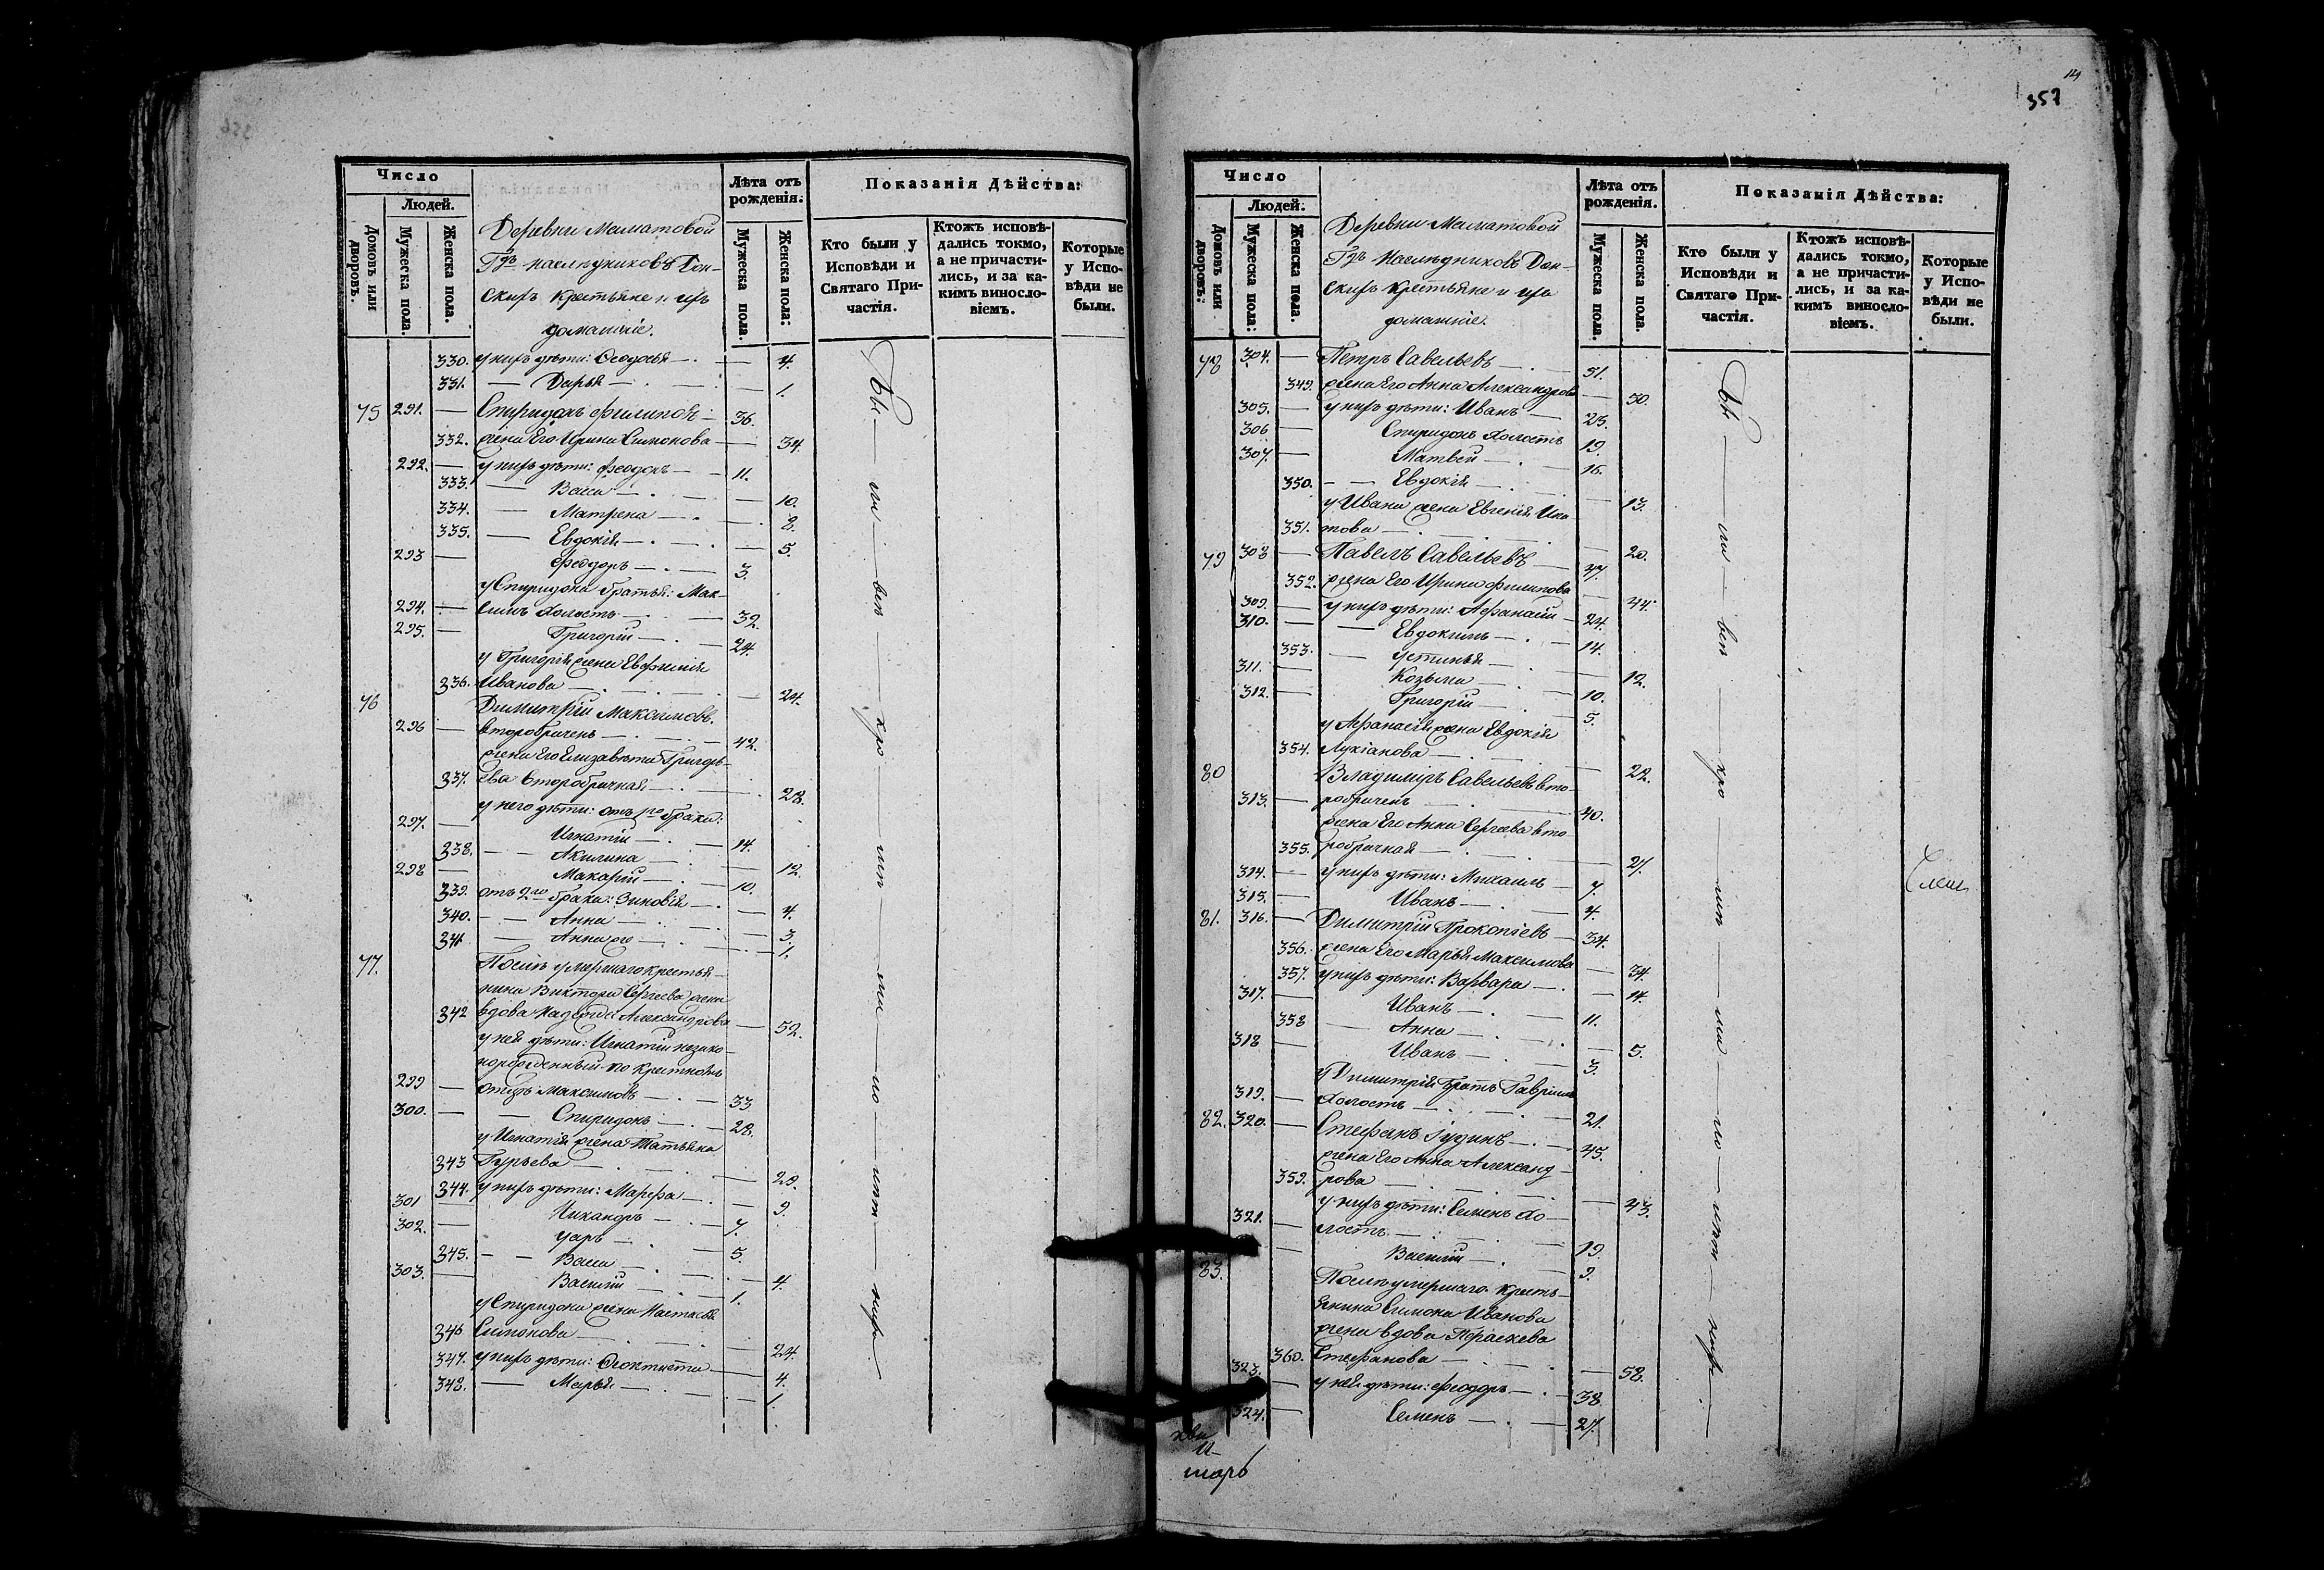 Число
Людей.
Домовъ или дворовъ.
Мужеска пола.
Женска пола.
Деревни Маматовой
Гдъ наслѣдниковъ Дон-
скихъ крестьяне и ихъ
домашніе.
Лѣта отъ рожденія:
Мужеска пола
Женска пола:
Показанія Дѣйства:
Кто были у Исповѣди и Святаго Причастія.
Ктожъ исповѣ-дались токмо, а не причасти-лись, и за ка-кимъ винослο-віемъ.
Которые у Испо-вѣди не были.
330. у нихъ дѣти: Ѳеодосья — 4.
331. — Дарья — 1.
75 291. — Спиридонъ Филиповъ — 36.
332. жена Его Ирина Симонова — 34.
292. — у нихъ дѣти: Феодоръ — 11.
333. — Васса — 10.
334. — Матрена — 8.
335. — Евдокія — 5.
293 — Феодоръ — 3.
у Спиридона братья: Мак-
294. — симъ холостъ — 32.
295. — Григорій — 24.
у Григорія жена Евфимія
336. Иванова — 24.
76 Димитрій Максимовъ
296 — второбрачень — 42.
жена Его Елизавета Григорь-
337. ева второбрачная — 28.
у него дѣти: отъ 1го брака:
297. — Игнатій — 14.
338. — Акилина — 12.
298 — Макарій — 10.
339. отъ 2го брака: Зиновія — 4.
340. — Анна — 3.
341 — Анна же — 1.
77. Послѣ умершаго крестья-
нина Виктора Сергѣева жена
342 вдова Надежда Александрова — 52.
у ней дѣти: Игнатій незако-
норожденный по крестномъ
299 — отцѣ Максимовъ — 33
300. — Спиридонъ — 28.
у Игнатія жена Татьяна
343 Гурьева — 28.
344. у нихъ дѣти: Марфа — 9.
301 — Никандръ — 7.
302. — Уаръ — 5.
345. — Васса — 4.
303. — Василій — 1.
у Спиридона жена Настасья
346 Симонова — 24.
347. у нихъ дѣти: Ѳеоктиста — 4.
348. — Марья — 1.
14
357
Число
Людей.
Домовъ или дворовъ:
Мужеска пола:
Женска пола.
Деревни Маматовой
Гдъ Наслѣдниковъ Дон-
скихъ крестьяне и ихъ
домашніе.
Лѣта отъ рожденія.
Мужеска пола
Женска пола.
Показанія Дѣйства:
Кто были у Исповѣди и Святаго При-частія.
Ктожъ исповѣ-дались токмо, а не причасти-лись, и за ка-кимъ виносло-віемъ.
Которые у Испо-вѣди не были.
78 304. — Петръ Савельевъ — 51.
349. жена Его Анна Александрова — 50.
305. — у нихъ дѣти: Иванъ — 23.
306 — Спиридонъ холостъ 19.
307. — Матвей — 16.
350. — Евдокія — 13.
у Ивана жена Евгенія Ипа-
351. това — 20.
79 308 — Павелъ Савельевъ — 47.
352. жена Его Ирина Филипова — 44.
309. — у нихъ дѣти: Афанасій — 24.
310. — Евдокимъ — 14.
353. — Устинья — 12.
311. — Козьма — 10.
312. — Григорій — 5.
у Афанасія жена Евдокія
354. Лукіанова — 22.
80 Владимиръ Савельевъ вто-
313. — робрачень — 40.
жена Его Анна Сергѣева вто-
355. робрачная — 27.
314. — у нихъ дѣти: Михаилъ — 7.
315. — Иванъ — 4.
81. 316. — Димитрій Прокопіевъ — 34.
356. жена Его Марья Максимова — 34.
357. у нихъ дѣти: Варвара — 14.
317. — Иванъ — 11.
358 — Анна — 5.
318 — Иванъ — 3.
у Димитрія братъ Гавріилъ
319. — холостъ — 21.
82. 320. — Стефанъ Іудинъ — 45.
жена Его Анна Александ-
359. рова — 43.
у нихъ дѣти: Семенъ хо-
321. — лостъ — 19.
— Василій — 9.
83. Послѣ умершаго кресть-
янина Симона Иванова
жена вдова Параскева
360. Стефанова — 58.
323. — у ней дѣти: Феодоръ — 38
324. — Семенъ — 27.